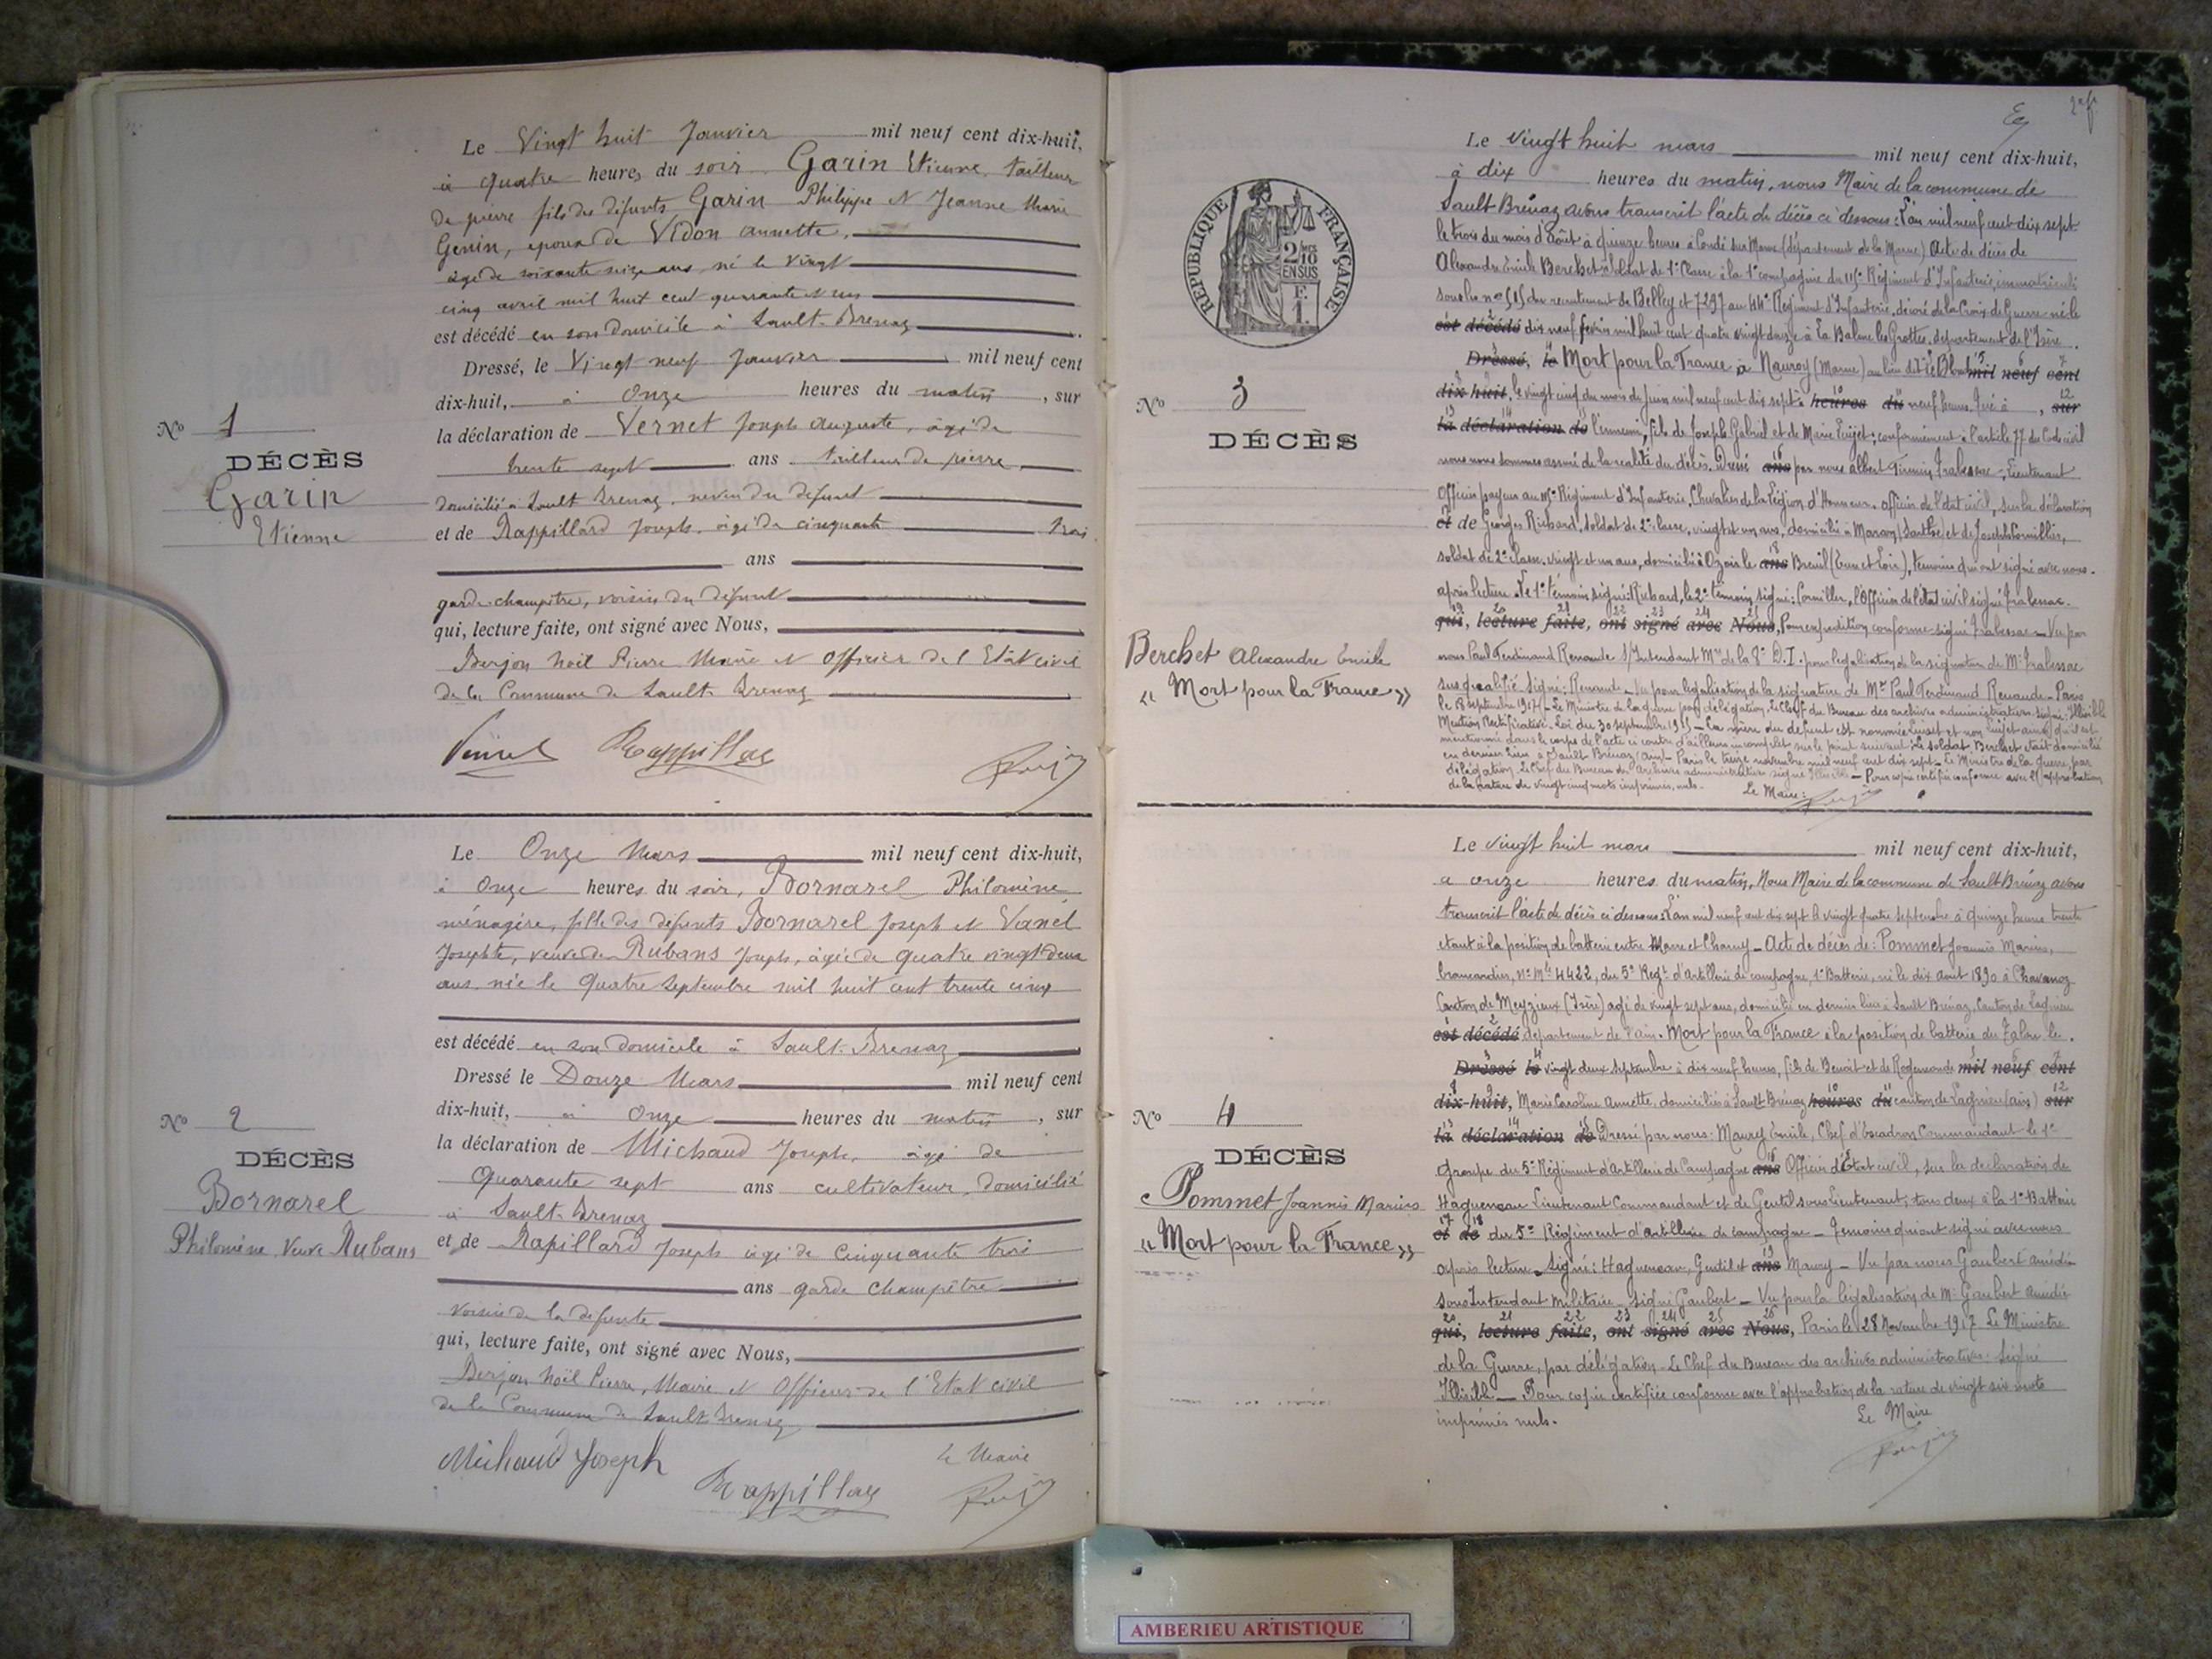 Le Vingt huit Janvier mil neuf cent dix-huit,
à quatre heures du soir Garin Etienne, tailleur
de pierre fils des défunts Garin Philippe et Jeanne Marie
Genin, époux de Vidon Annette,
âgé de soixante seize ans, né le vingt
cinq avril mil huit cent quarante et un
est décédé en son domicile à Sault-Brenaz
Dressé, le Vingt neuf Janvier mil neuf cent
dix-huit, à Onze heures du matin, sur
la déclaration de Vernet Joseph Auguste, âgé de
trente sept ans tailleur de pierre
domicilié à Sault Brenaz, neveu du défunt
et de Rappillard Joseph, âgé de cinquante trois
ans
garde-champêtre, voisin du défunt
qui, lecture faite, ont signé avec Nous,
Berjon Noël Pierre Maire et Officier de l'Etat civil
de la Commune de Sault-Brenaz
No 1
DÉCÈS
Garin
Etienne
Le Onze Mars mil neuf cent dix-huit,
à Onze heures du soir, Bornarel Philomène
ménagère, fille des défunts Bornarel Joseph et Vanel
Josephte, veuve de Rubans Joseph, âgée de quatre vingt deux
ans née le Quatre Septembre mil huit cent trente cinq
est décédé en son domicile à Sault-Brenaz
Dressé le Douze Mars mil neuf cent
dix-huit, à Onze heures du matin, sur
la déclaration de Michaud Joseph, âgé de
Quarante sept ans cultivateur, domicilié
à Sault-Brenaz
et de Rapillard Joseph âgé de Cinquante trois
ans garde champêtre
voisin de la défunte
qui, lecture faite, ont signé avec Nous,
Berjon Noël Pierre, Maire et Officier de l'Etat civil
de la Commune de Sault Brenaz
Michaud Joseph
Le Maire
No 2
DÉCÈS
Bornarel
Philomène Veuve Rubans
RÉPUBLIQUE FRANÇAISE
2/10 EN SUS
F. 1.
No 3
DÉCÈS
Berchet Alexandre Emile
« Mort pour la France »
Le vingt huit mars mil neuf cent dix-huit,
à dix heures du matin, nous Maire de la commune de
Sault Brénaz avons transcrit l'acte de décès ci dessous: L'an mil neuf cent dix sept
le trois du mois d'Août à quinze heures à Condé sur Marne (département de la Marne) Acte de décès de
Alexandre Emile Berchet soldat de 1e Classe à la 1e compagnie du Régiment d'Infanterie, immatriculé
sous le no du recrutement de Belley et 7297 au 44e Régiment d'Infanterie, décoré de la Croix de Guerre né le
est décédé dix neuf février mil huit cent quatre vingt douze à La Balme les Grottes, département de l'Isère.
Dressé, le Mort pour la France à Nauroy (Marne) au lieu dit le mil neuf cent
dix-huit, le vingt cinq du mois de Juin mil neuf cent dix sept à heures du neuf heures, tué à, sur
la déclaration de l'ennemi, fils de Joseph Gabriel et de Marie; conformément à l'article 77 du Code civil
nous nous sommes assuré de la réalité du décès. Dressé ans par nous Albert Firmin, Lieutenant
Officier payeur au Régiment d'Infanterie, Chevalier de la Légion d'Honneur, officier de l'état civil, sur la déclaration
et de Georges Richard, soldat de 2e classe, vingt et un ans, domicilié à (Sarthe) et de Joseph Cornillier,
soldat de 2e classe, vingt et un ans, domicilié à Ozoir le ans Breuil (Eure et Loir), témoins qui ont signé avec nous
après lecture. Le 1e témoin signé: Richard, le 2e témoin signé: Cornillier, l'Officier de l'état civil signé
qui, lecture faite, ont signé avec Nous, Pour expédition conforme signé Vu par
nous Paul Ferdinand Renaude S/Intendant Mre de la 8e D.I. pour légalisation de la signature de Mr
sus qualifié. Signé: Renaude. Vu pour légalisation de la signature de Mr Paul Ferdinand Renaude. Paris
le 18 septembre 1917. Le Ministre de la guerre par délégation. Le Chef du Bureau des archives administratives signé: Illisible
Mention Rectificative. Loi du 30 septembre 1915. La mère du défunt est nommée et non ainsi qu'il est
mentionné dans le corps de l'acte ci contre d'ailleurs incomplet sur le point suivant: le soldat Berchet était domicilié
en dernier lieu à Sault Brénaz (Ain). Paris le treize novembre mil neuf cent dix sept. Le Ministre de la Guerre, par
délégation. Le Chef du Bureau des Archives administratives signé Illisible. Pour copie certifiée conforme avec l'approbation
de la rature de vingt cinq mots imprimés, nuls. Le Maire:
No 4
DÉCÈS
Pommet Joannis Marius
« Mort pour la France »
Le vingt huit mars mil neuf cent dix-huit,
à onze heures du matin, Nous Maire de la commune de Sault-Brénaz avons
transcrit l'acte de décès ci dessous: L'an mil neuf cent dix sept le vingt quatre septembre à quinze heures trente
étant à la position de batterie entre Marre et Charny. Acte de décès de: Pommet Joannis Marius,
brancardier, No Mle 4422, du 5e Regt d'artillerie de campagne, 1e Batterie, né le dix août 1890 à Chavanoz
Canton de Meyzieux (Isère) âgé de vingt sept ans, domicilié en dernier lieu à Sault Brénaz, Canton de Lagnieu
est décédé département de l'ain. Mort pour la France à la position de batterie du le
Dressé le vingt deux septembre à dix neuf heures, fils de Benoit et de mil neuf cent
dix-huit, Marie Caroline Annette, domiciliés à Sault-Brénaz heures du canton de Lagnieu (ain) sur
la déclaration de Dressé par nous: Maury Emile, Chef d'Escadron Commandant le 1e
Groupe du 5e Régiment d'Artillerie de Campagne ans Officier d'État civil, sur la déclaration de
Haguenau Lieutenant Commandant et de Gentil sous Lieutenant; tous deux à la 1e Batterie
et de du 5e Régiment d'artillerie de campagne. Témoins qui ont signé avec nous
après lecture. Signé: Haguenau, Gentil et ans Maury. Vu par nous Gaubert amédée
Sous Intendant Militaire. signé Gaubert. Vu pour la légalisation de Mr Gaubert amédée
qui, lecture faite, ont signé avec Nous, Paris le 28 Novembre 1917 Le Ministre
de la Guerre, par délégation. Le Chef du Bureau des archives administratives: Signé
Illisible. Pour copie certifiée conforme avec l'approbation de la rature de vingt six mots
imprimés nuls. Le Maire
AMBERIEU ARTISTIQUE